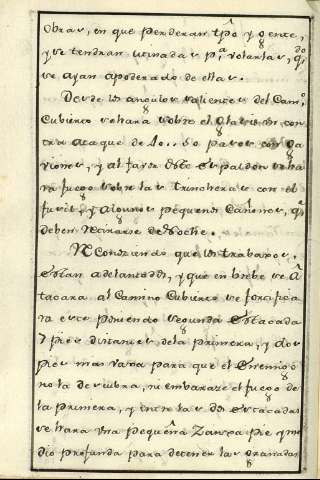 obrar, en que perderan tpô y gente,
y se tendran minadas pª volarlas, qdo
se ayan apoderado de ellas.
Desde los angulos salientes del Camº
Cubierto se hara sobre el Glasis un con
tra ataque de 40..50 pasos con Ga
viones, y al favor de este Espaldon se ha
ra fuego sobre las trincheras con el
fusil, y algunos pequenos Cañones, qe
deben retirarse de Noche.
Reconosiendo que los trabajos
estan adelantados, y que en breve se A
tacara al Camino Cubierto se fortifica
ra este poniendo segunda Estacada
7 pies distantes de la primera, y dos
pies mas vaxa para que el Enemigo
no la descubra, ni embaraze el fuego de
la primera, y entre las dos estacadas
se hara una pequeña Zanxa pie y me
dio profunda para detener las granadas